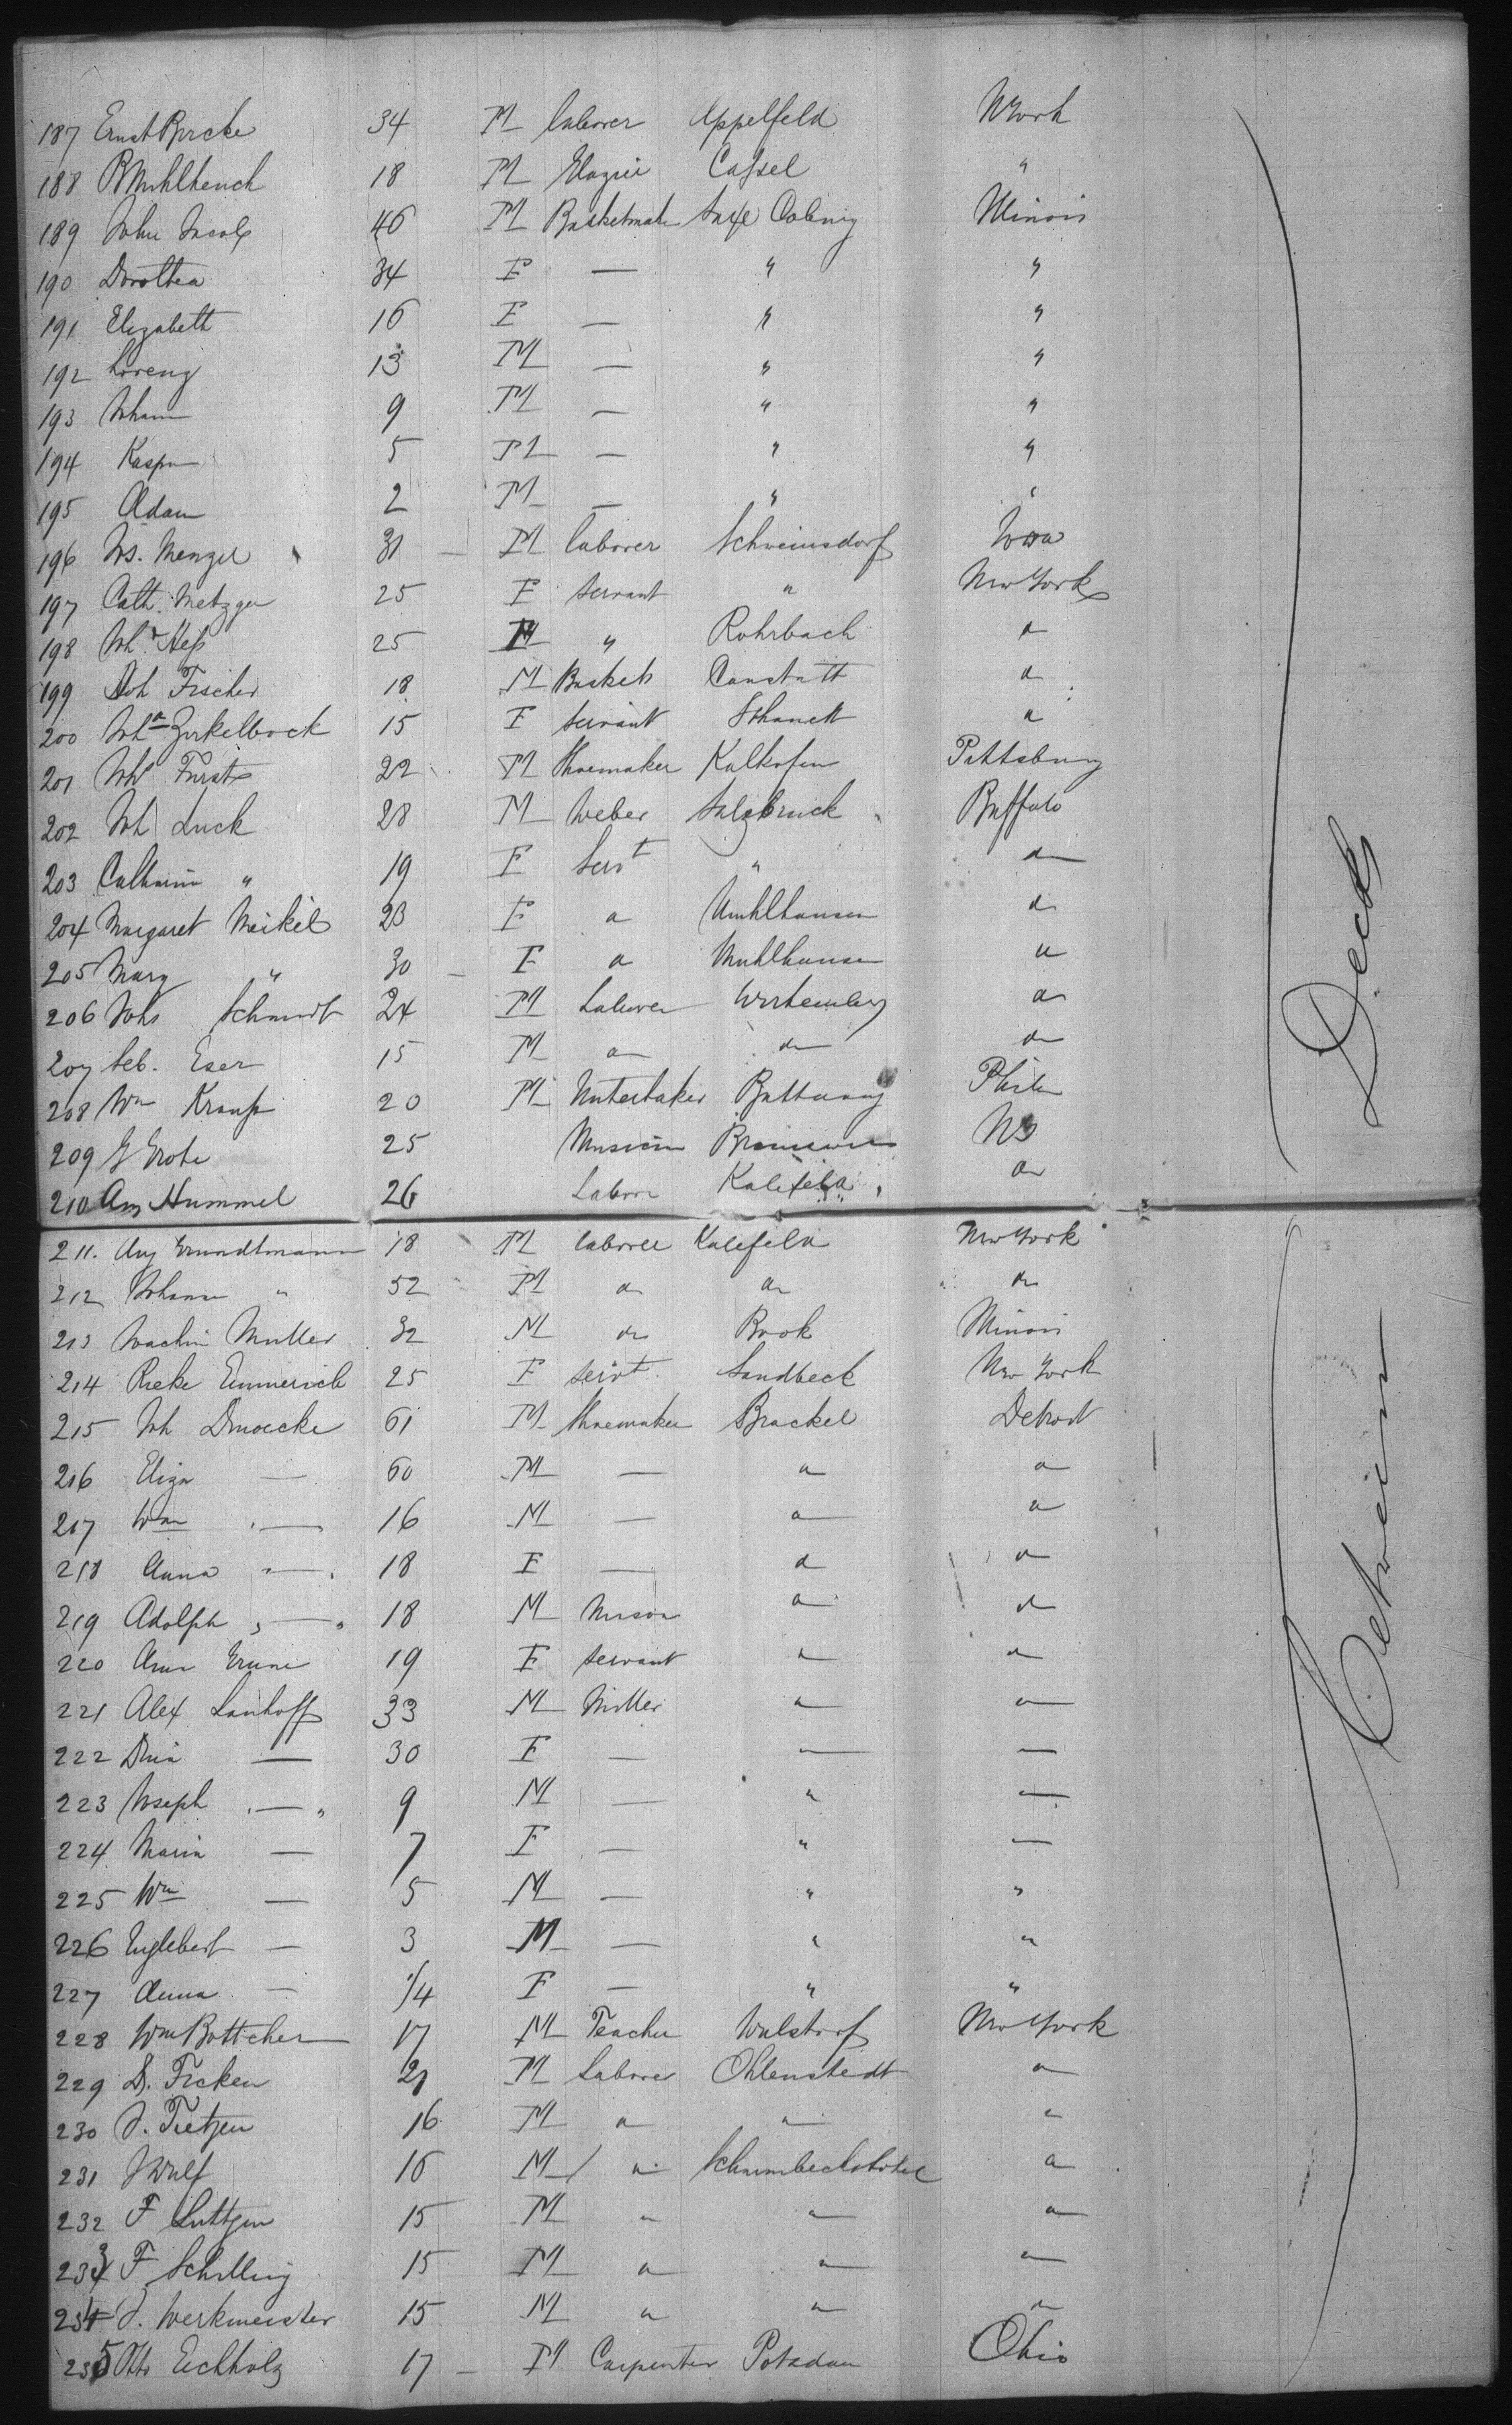 187 Ernst Bercke 34 M laborer Appelfeld NYork
188 R Muhlhench 18 M Cassel "
189 John Jacob 46 M Basketmak Saxe Coburg Illinois
190 Dorothea 34 F — " "
191 Elizabeth 16 F — " "
192 Lorenz 13 M — " "
193 Johann 9 M — " "
194 Kaspar 5 M — " "
195 Adam 2 M — " "
196 Js. Menzel 31 M laborer Schweinsdorf Iowa
197 Cath. Metzger 25 F servant " New York
198 Jh. Hess 25 M " Rohrbach "
199 Joh Fischer 18 M Baskets Canstatt "
200 Jha Zirkelbock 15 F servant "
201 Jhs Furst 22 M Shoemaker Kalkofen Pittsburg
202 Joh Luck 28 M Weber Salzbruck Buffalo
203 Catharina " 19 F Servt " "
204 Margaret Meikel 23 F " Muhlhausen "
205 Mary " 30 F " Muhlhausen "
206 Johs Schmidt 24 M Laborer Wirtemberg "
207 Seb. Eser 15 M " " "
208 Wm Krauss 20 M Untertaker Phila
209 G Grote 25 Musician NY
210 Aug Hummel 26 Labor Kalefeld "
211. Aug Grundtmann 18 M laborer Kalefeld New York
212 Johann " 52 M " " "
213 Joachim Muller 32 M do Brook Illinois
214 Rieke Emmerich 25 F servt. Sandbeck New York
215 Joh Dmoecke 61 M Shoemaker Brackel Detroit
216 Eliza — 60 M — " "
217 Wm — 16 M — " "
218 Anna — 18 F — " "
219 Adolph — 18 M Mason " "
220 Anna Grune 19 F servant " "
221 Alex Lanhoff 33 M Miller " "
222 — 30 F — " —
223 Joseph — 9 M — " "
224 Maria — 7 F — " —
225 Wm — 5 M — " "
226 Englebert — 3 M — " "
227 Anna — 1/4 F — " "
228 Wm Bottcher 17 M Teacher Wulstorf New York
229 D. Ficken 21 M Laborer Ohlenstedt "
230 J. Tietjen 16 M " " "
231 J Wulf 16 M " "
232 F Luttjen 15 M " " "
233 F Schilling 15 M " " "
234 J. Werkmeister 15 M " " "
235 Otto Eichholz 17 M Carpenter Potsdam Ohio
Deck
Between